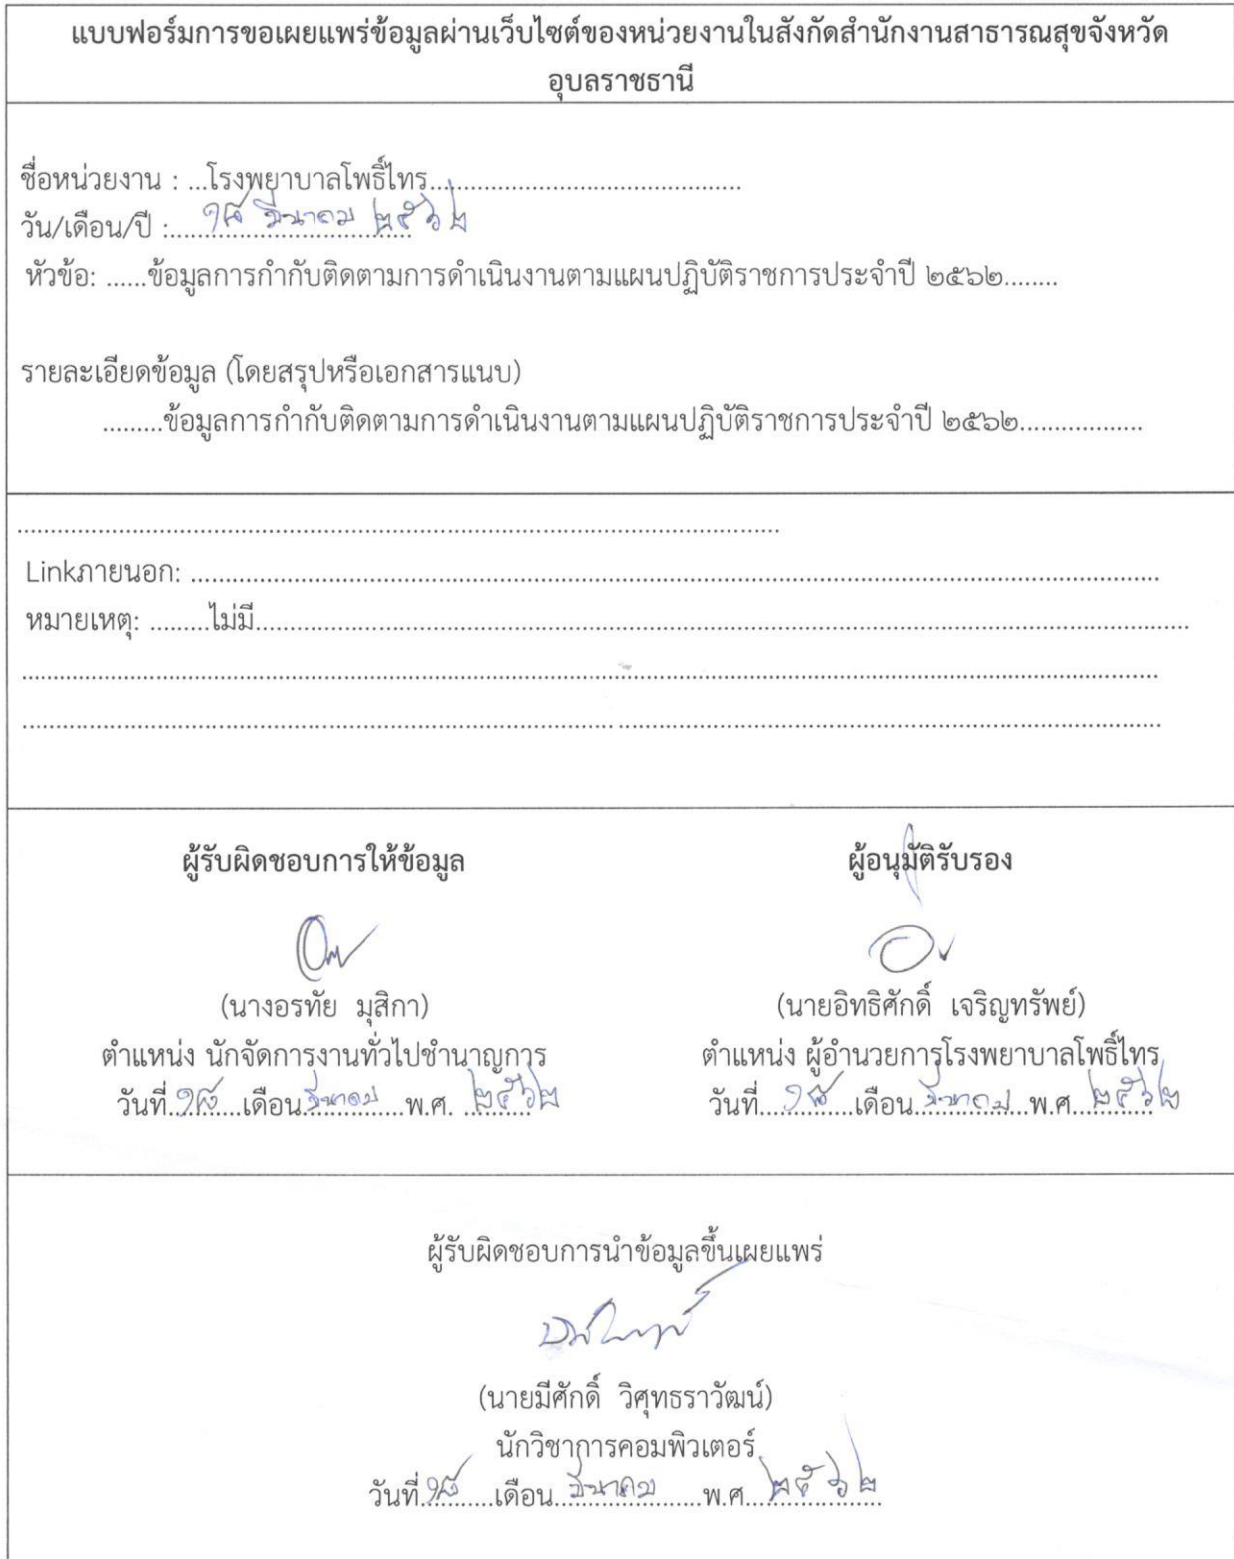 แบบฟอร์มการขอเผยแพร่ข้อมูลผ่านเว็บไซต์ของหน่วยงานในสังกัดสำนักงานสาธารณสุขจังหวัด
อุบลราชธานี
ชื่อหน่วยงาน : ...โรงพยาบาลโพธิ์ไทร...............................................
วัน/เดือน/ปี :.....๑๘ มีนาคม ๒๕๖๒
หัวข้อ: ......ข้อมูลการกำกับติดตามการดำเนินงานตามแผนปฏิบัติราชการประจำปี ๒๕๖๒........
รายละเอียดข้อมูล (โดยสรุปหรือเอกสารแนบ)
.........ข้อมูลการกำกับติดตามการดำเนินงานตามแผนปฏิบัติราชการประจำปี ๒๕๖๒..................
Linkภายนอก: ..........................................................................
หมายเหตุ: .........ไม่มี..........................................................................
ผู้รับผิดชอบการให้ข้อมูล
(นางอรทัย มุสิกา)
ตำแหน่ง นักจัดการงานทั่วไปชำนาญการ
วันที่.๑๘....เดือน.มีนาคม...พ.ศ. ๒๕๖๒
ผู้อนุมัติรับรอง
(นายอิทธิศักดิ์ เจริญทรัพย์)
ตำแหน่ง ผู้อำนวยการโรงพยาบาลโพธิ์ไทร
วันที่....๑๘....เดือน.มีนาคม...พ.ศ...๒๕๖๒
ผู้รับผิดชอบการนำข้อมูลขึ้นเผยแพร่
(นายมีศักดิ์ วิศุทธราวัฒน์)
นักวิชาการคอมพิวเตอร์
วันที่.๑๘....เดือน..มีนาคม....พ.ศ...๒๕๖๒